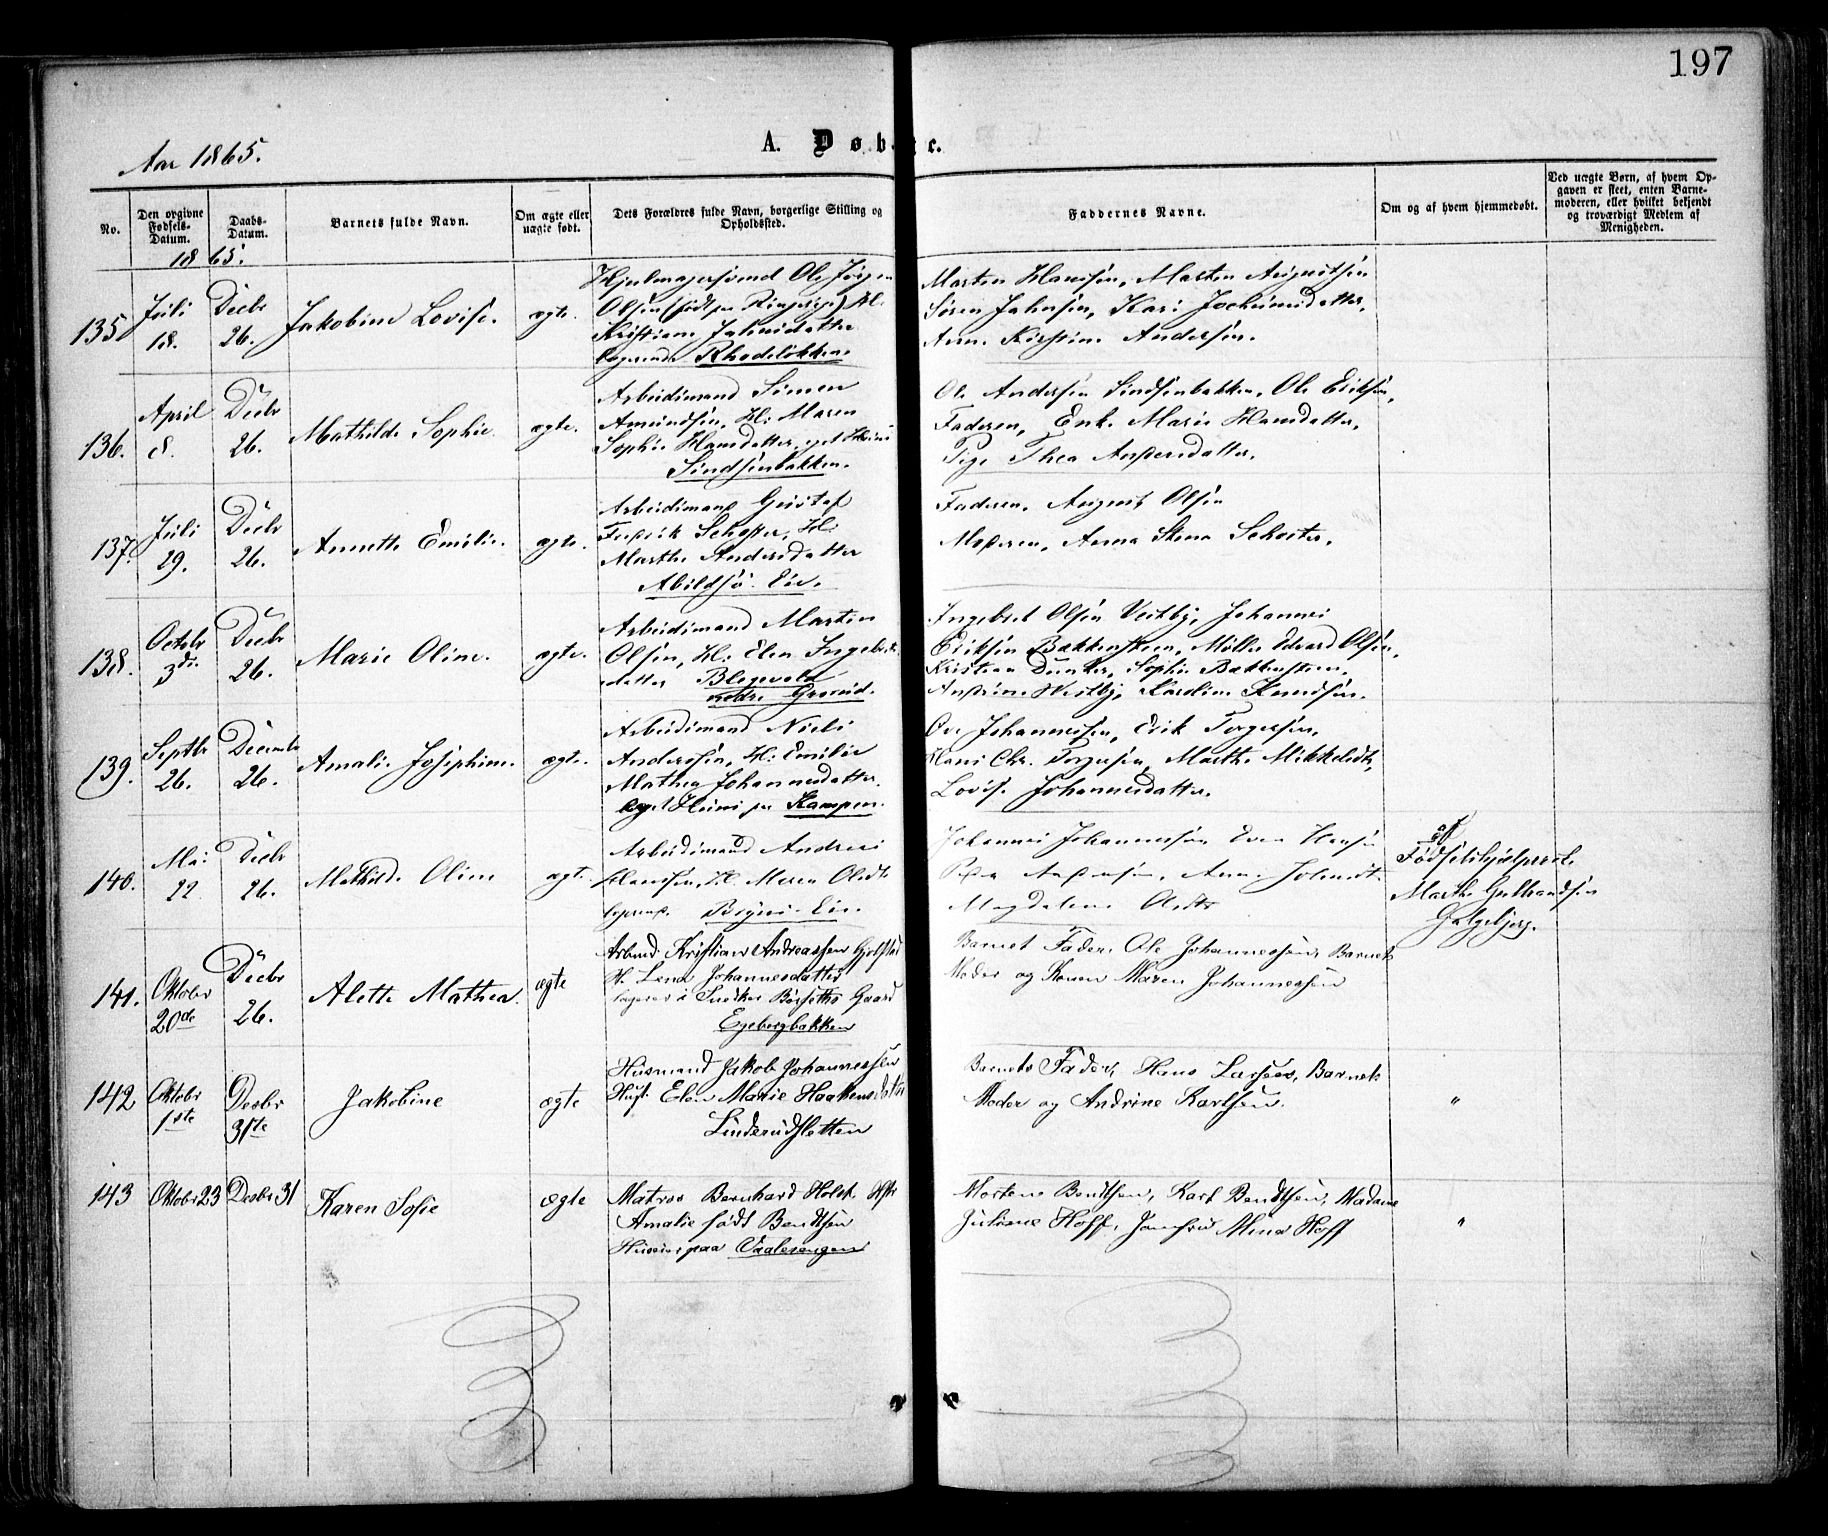 197
Aar 1865.
A. Døb
e.
No.
Den opgivne Fødsels-Datum.
Daabs-Datum.
Barnets fulde Navn.
Om ægte eller uægte født.
Dets Forældres fulde Navn, borgerlige Stilling og Opholdssted.
Faddernes Navne.
Om og af hvem hjemmedøbt.
Ved uægte Børn, af hvem Opgaven er skeet, enten Barnemoderen, eller hvilket bekjendt og troværdigt Medlem af Menigheden.
1865.
135
Juli 18.
Decbr 26.
Jakobine Lovise.
ægte.
Hjulmagersvend Ole Jörgen
Olsen (födt paa Ringerige) H:
Kristiane Jahnsdatter
logerende Rhodelökken.
Marten Hansen, Marten Augustsen
Sören Jahnsen, Kari Jochumsdatter,
Anne Kirstine Andersen.
136.
April 8.
Decbr 26.
Mathilde Sophie.
ægte.
Arbeidsmand Simen
Amundsen, H: Maren
Sophie Hansdatter, eget Huus
Sindsenbakken.
Ole Andersen Sindsenbakken, Ole Eriksen,
Faderen, Enke Marie Hansdatter,
Pige Thea Andersdatter.
137.
Juli 29.
Decbr 26.
Annette Emilie.
ægte.
Arbeidsmand Gustaf
Fredrik Schoster, H:
Marthe Andersdatter
Abildsö Eie.
Faderen, August Olsen
Moderen, Anna Stena Schoster.
138.
Octobr 3die
Decbr 26.
Marie Oline.
ægte.
Arbeidsmand Martin
Olsen, H: Elen Ingebrets-
datter Blegevold
nedre Grorud.
Ingebret Olsen Vestby, Johannes
Eriksen Bakkensteen, Möller Edvard Olsen,
Kristian Dunker, Sophie Bakkensteen,
Andrine Westby, Karoline Knudsen.
139.
Septbr 26.
Decembr 26.
Amalie Josephine.
ægte.
Arbeidsmand Niels
Anderssen, H: Emilie
Mathea Johannesdatter.
eget Huus paa Kampen.
Ole Johannessen, Erik Torgersen,
Hans Chr. Torgersen, Marthe Mikkelsdtr,
Lovise Johannesdatter.
140.
Mai 22
Decbr 26.
Mathilde Oline
ægte.
Arbeidsmand Andreas
Hanssen, H. Maren Olsdtr
logerende Bryns Eie.
Johannes Johannessen Even Hansen
Peder Andersen, Anne Johnsdtr.
Magdalene Olsdtr
af
Fødselshjælperske
Marthe Gulbrandsen
Galgebjerg.
141.
Oktober 20de
Decbr 26.
Alette Mathea.
ægte
Arbmd. Kristian Andreassen Gjølstad
H. Lena Johannesdatter
logerer i Snedker Börseths Gaard
Egebergbakken
Barnet Fader, Ole Johannessen, Barnets
Moder og Konen Maren Johannessen
142
Oktobr 1ste
Decbr 31te
Jakobine
ægte
Husmand Jakob Johannessen
Hust. Elen Marie Haakensdatter
Linderudsletten
Barnets Fader, Hans Larsen, Barnets
Moder og Andrine Karlsen.
"
143
Oktober 23
Decbr 31
Karen Sofie
ægte
Matros Bernhard Holst Hstr
Amalie født Bendtsen
Huseier paa Vaalerengen
Mortens Bendtsen, Karl Bendtsen, Madame
Juliane Hoff, Jomfru Mina Hoff
"